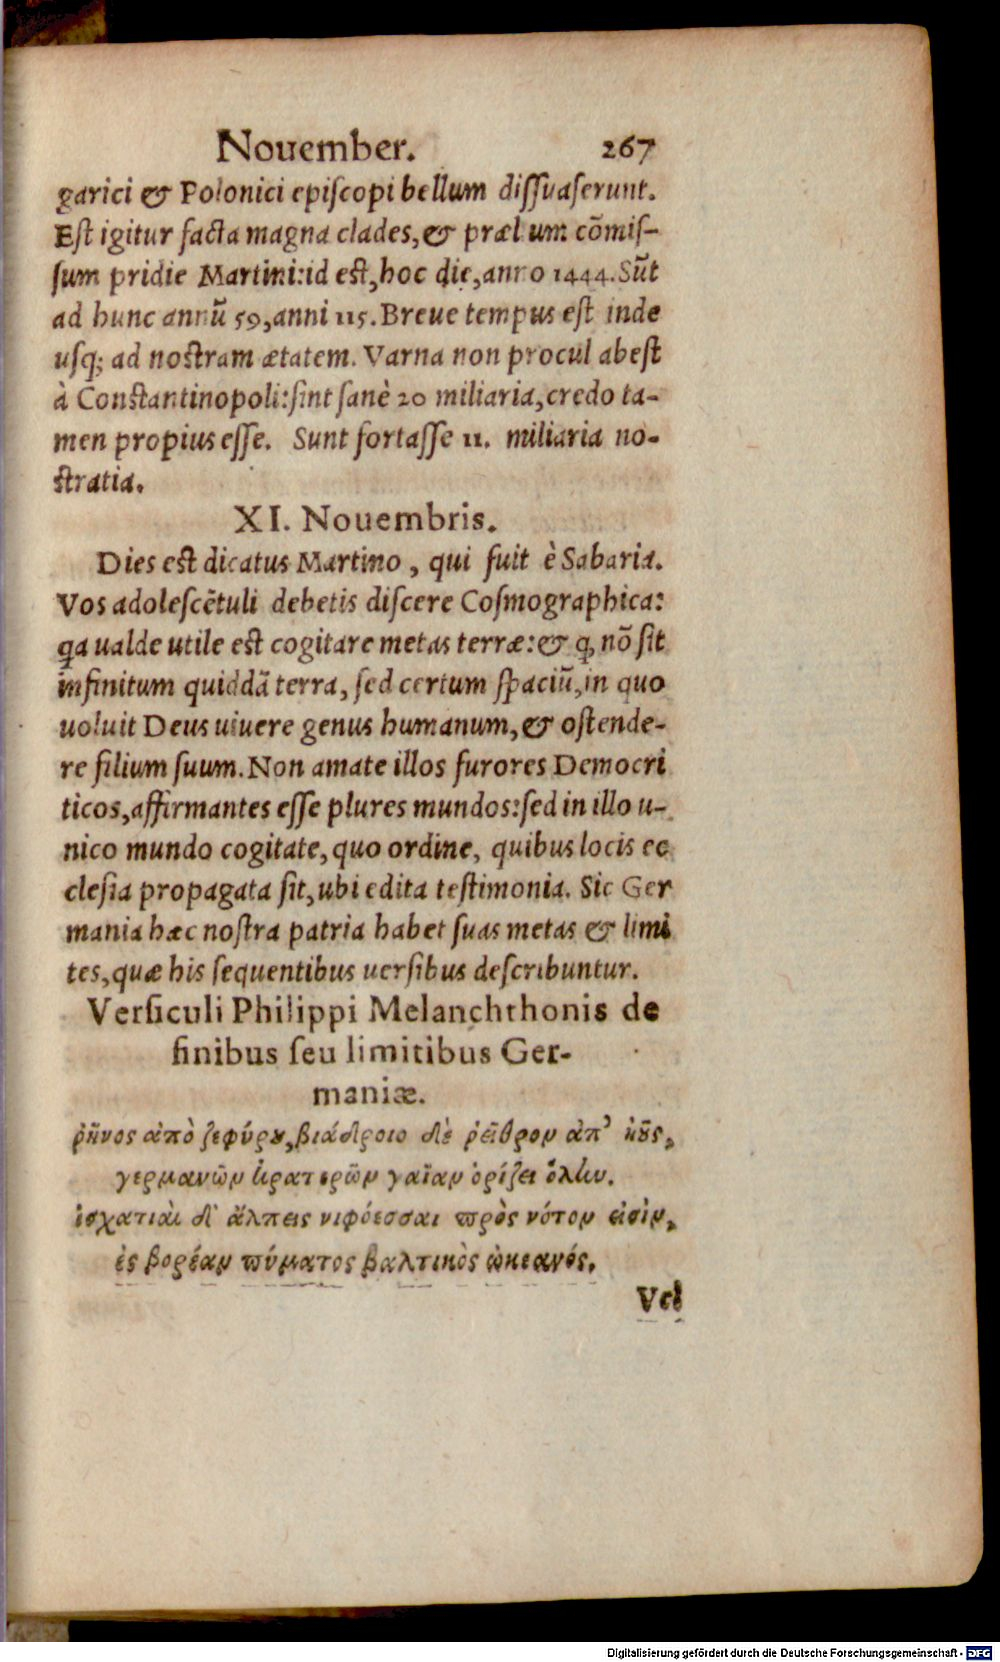 Nouember. 267
garici & Polonici epiſcopi bellum diſſuaſerunt.
Eſt igitur facta magna clades, & prælium cōmiſ-
ſum pridie Martini: id eſt, hoc die, anno 1444. Sūt
ad hunc annū 59, anni 115. Breue tempus eſt inde
uſq; ad noſtram ætatem. Varna non procul abeſt
à Conſtantinopoli: ſint ſanè 20 miliaria, credo ta-
men propius eſſe. Sunt fortaſſe 11. miliaria no-
ſtratia.
XI. Nouembris.
Dies eſt dicatus Martino, qui fuit è Sabaria.
Vos adoleſcētuli debetis diſcere Coſmographica:
ꝗa ualde utile eſt cogitare metas terræ: & ꝙ nō ſit
infinitum quiddā terra, ſed certum ſpaciū, in quo
uoluit Deus uiuere genus humanum, & oſtende-
re filium ſuum. Non amate illos furores Democri
ticos, affirmantes eſſe plures mundos: ſed in illo u-
nico mundo cogitate, quo ordine, quibus locis ec
cleſia propagata ſit, ubi edita teſtimonia. Sic Ger
mania hæc noſtra patria habet ſuas metas & limi
tes, quæ his ſequentibus uerſibus deſcribuntur.
Verſiculi Philippi Melanchthonis de
finibus ſeu limitibus Ger-
maniæ.
ῥῆνος ἀπὸ ζεφύρου, βιάδροιο δὲ ῥεῖθρον ἀπ' ἠοῦς,
γερμανῶν κρατερῶν γαῖαν ὁρίζει ὅλην.
ἐσχατιαὶ δ' ἄλπεις νιφόεσσαι πρὸς νότον εἰσὶν,
ἐς βορέαν πύματος βαλτικὸς ὠκεανός.
Vel
Digitalisierung gefördert durch die Deutsche Forschungsgemeinschaft - DFG